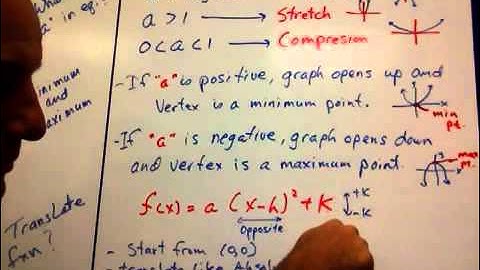 "a" in eq?
a > 1 → Stretch
0 < a < 1 → Compresion
inimum
and
aximum
- If "a" is positive, graph opens up and
vertex is a minimum point.
min
pt.
- If "a" is negative, graph opens down
and vertex is a maximum point.
max
pt.
Translate
fxn?
f(x) = a (x-h)² + K
+K
-K
opposite
- Start from (0,0)
like